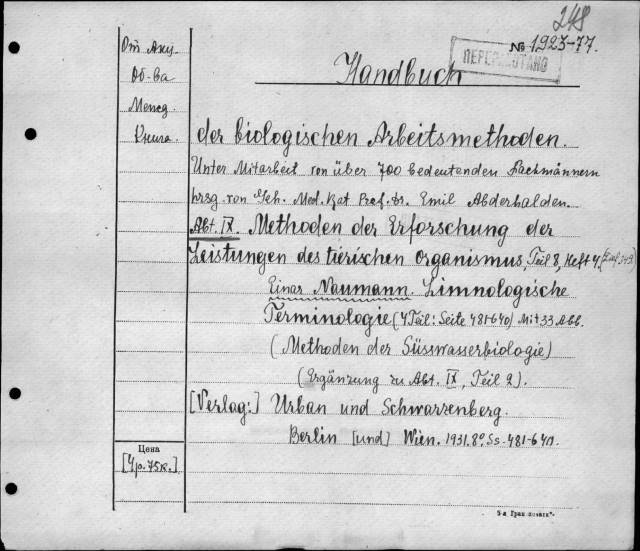 248
№ 1923-77.
ПЕРЕРАБОТАНО
От Аку.
Об-ва
Межд.
Книга.
Handbuch
der biologischen Arbeitsmethoden.
Unter Mitarbeit von über 700 bedeutenden Fachmännern
hrsg. von Geh. Med. Rat Prof. Dr. Emil Abderhalden.
Abt. IX. Methoden der Erforschung der
Leistungen des tierischen Organismus, Teil 8, Heft 4,
Einar Naumann. Limnologische
Terminologie (4 Teil: Seite 481-640) Mit 33 Abb.
(Methoden der Süsswasserbiologie)
(Ergänzung zu Abt. IX, Teil 2).
[Verlag:] Urban und Schwarzenberg.
Berlin [und] Wien. 1931. 8° Ss. 481-640.
Цена
[4р. 75к.]